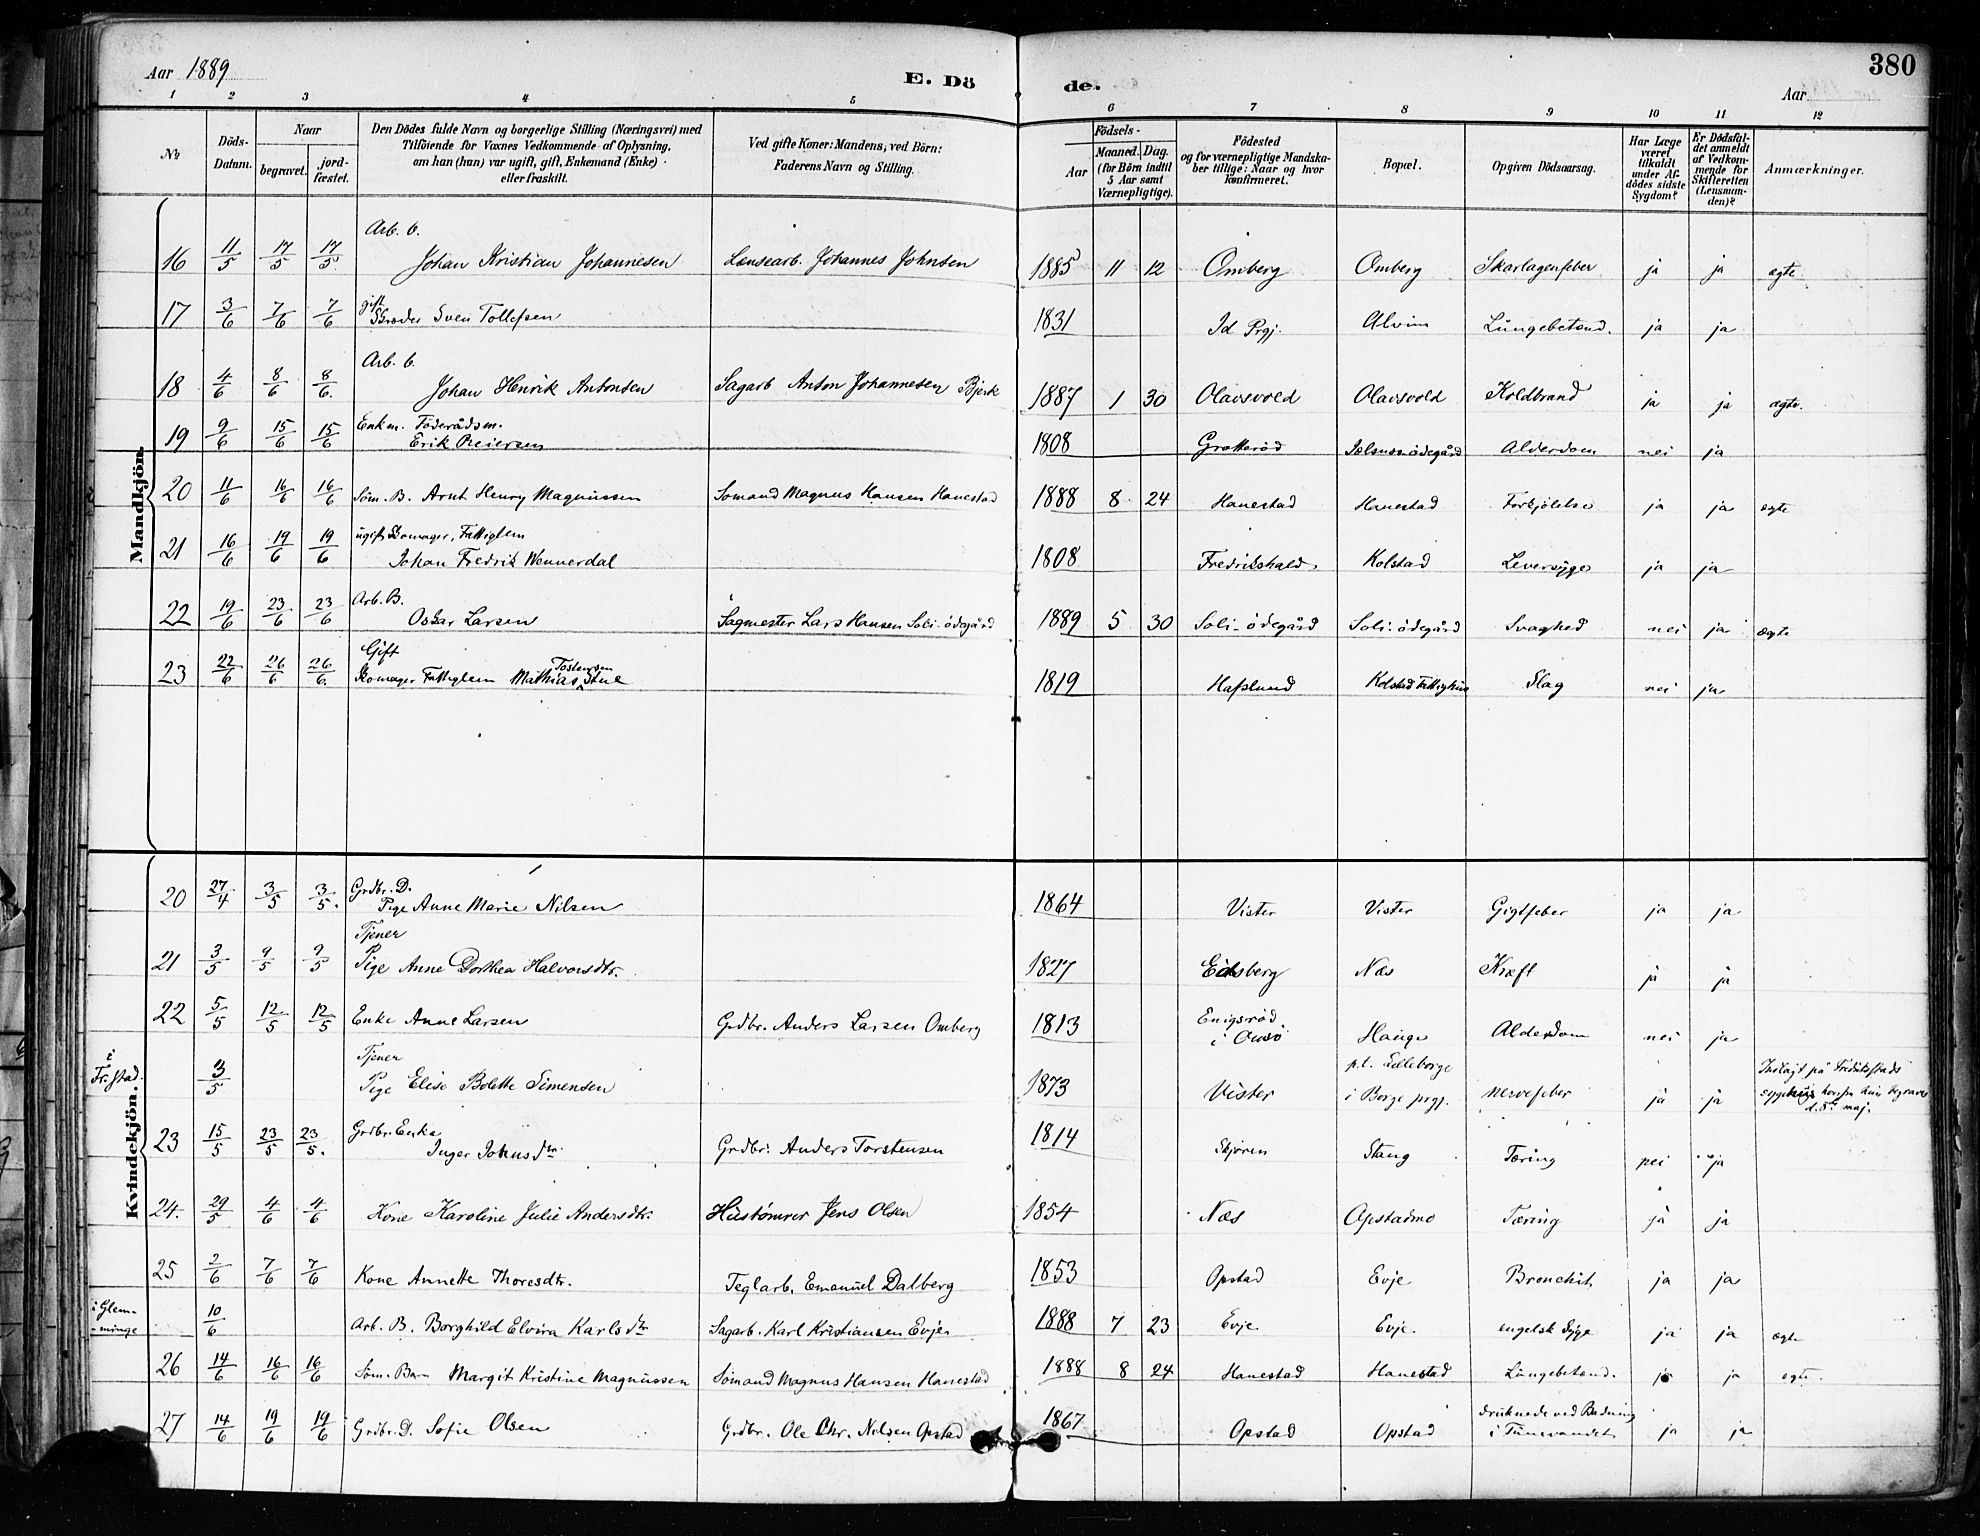 Aar 1889 E. Dö de. Aar 380
1 2 3 4 5 6 7 8 9 10 11 12
No
Döds-Datum.
Naar
begravet.
jord-fæstet.
Den Dödes fulde Navn og borgerlige Stilling (Næringsvei) med
Tilföiende for Voxnes Vedkommende af Oplysning,
om han (hun) var ugift, gift, Enkemand (Enke)
eller fraskilt.
Ved gifte Koner: Mandens, ved Börn:
Faderens Navn og Stilling.
Födsels-
Aar
Maaned. Dag.
(for Börn indtil
5 Aar samt
Værnepligtige).
Födested
og for værnepligtige Mandska-
ber tillige: Naar og hvor
konfirmeret.
Bopæl.
Opgiven Dödsaarsag.
Har Læge
været
tilkaldt
under Af-
dödes sidste
Sygdom?
Er Dödsfal-
det anmeldt
af Vedkom-
mende for
Skifteretten
(Lensman-
den)?
Anmærkninger.
Mandkjön.
Arb. b.
16 11/5 17/5 17/5 Johan Kristian Johannesen Lænsearb. Johannes Johnsen 1885 11 12 Omberg Omberg Skarlagensfeber ja ja ægte
gift
17 3/6 7/6 7/6 Skræder Sven Tollefsen 1831 Id Prgj. Alvim Lungebetænd. ja ja
Arb. b.
18 4/6 8/6 8/6 Johan Henrik Antonsen Sagarb Anton Johannesen Bjerk 1887 1 30 Olavsvold Olavsvold Koldbrand ja ja ægte.
Enkm. Föderådsm.
19 9/6 15/6 15/6 Erik Reiersen 1808 Gretteröd ödegård Alderdom nei ja
20 11/6 16/6 16/6 Söm. B. Arnt Henry Magnussen Sömand Magnus Hansen Hanestad 1888 8 24 Hanestad Hanestad Forkjölelse ja ja ægte
ugift Skomager, Fattiglem
21 16/6 19/6 19/6 Johan Fredrik Wennerdal 1808 Fredrikshald Kolstad Leversyge ja ja
Arb. B.
22 19/6 23/6 23/6 Oskar Larsen Sagmester Lars Hansen Soli-ödegård 1889 5 30 Soli-ödegård Soli-ödegård Svaghed nei ja ægte
Gift
Tostensen
23 22/6 26/6 26/6 Skomager Fattiglem Mathias Stue 1819 Hafslund Kolstad Fattighus Slag nei ja
Kvindekjön.
Grdbr. D.
20 27/4 3/5 3/5 Pige Anne Marie Nilsen 1864 Vister Vister Gigtfeber ja ja
Tjener
21 3/5 9/5 9/5 Pige Anne Dorthea Halvorsdtr. 1827 Eidsberg Næs Kræft ja ja
22 5/5 12/5 12/5 Enke Anne Larsen Grdbr. Anders Larsen Omberg 1813 Enigsröd
i Onsö Hauge Alderdom nei ja
i
Fr.stad.
Tjener
3/5 Pige Elise Bolette Simensen 1873 Vister p.t. Lilleborge
i Borge prgj. Nervefeber ja ja Indlagt på Fredrikstads
sygehus hvorfra hun begraves
d. 8de maj.
Grdbr. Enke
23 15/5 23/5 23/5 Inger Johnsdtr. Grdbr. Anders Torstensen 1814 Skjören Stang Tæring nei ja
24. 29/5 4/6 4/6 Kone Karoline Julie Andersdtr. Hustömrer Jens Olsen 1854 Næs Opstadmo Tæring ja ja
25 2/6 7/6 7/6 Kone Annette Thoresdtr. Teglarb. Emanuel Dalberg 1853 Opstad Evje Bronchit ja ja
i Glem-
-minge
10/6 Arb. B. Borghild Elvira Karlsdtr Sagarb. Karl Kristiansen Evje 1888 7 23 Evje Evje engelsk Syge ja ja ægte
26 14/6 16/6 16/6 Söm. Barn Margit Kristine Magnussen Sömand Magnus Hansen Hanestad 1888 8 24 Hanestad Hanestad Lungebetænd. ja ja ægte.
27 14/6 19/6 19/6 Grdbr. D. Sofie Olsen Grdbr. Ole Chr. Nilsen Opstad 1867 Opstad Opstad druknede ved Badning
i Tunevandet ja ja